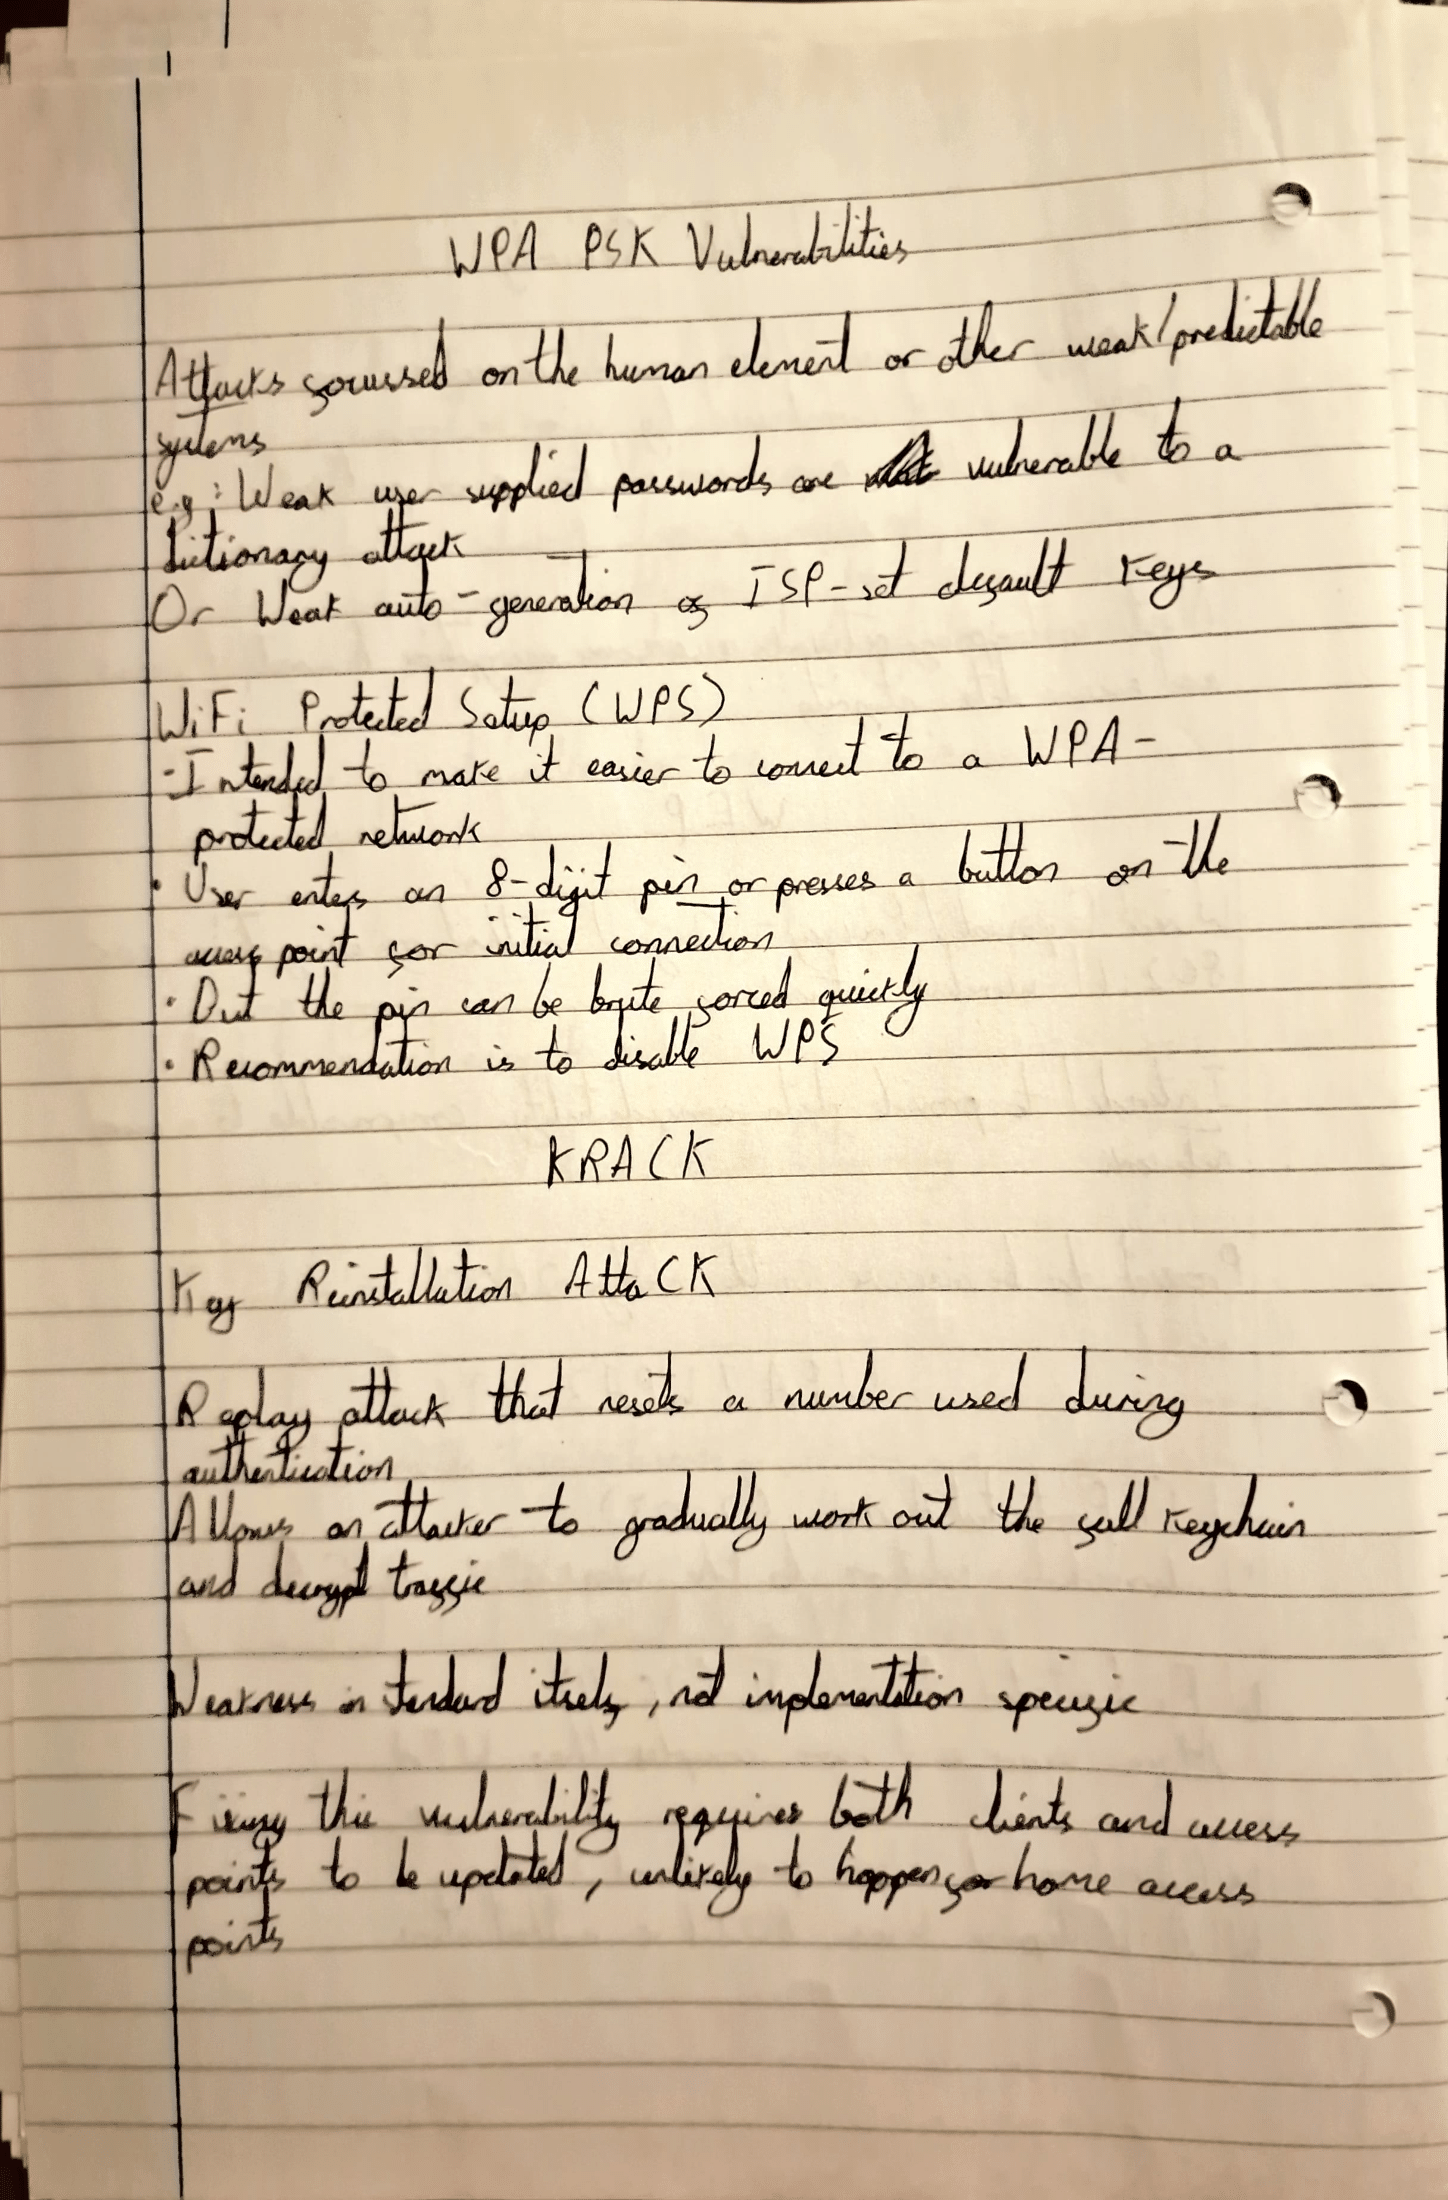 WPA PSK Vulnerabilities
Attacks focussed on the human element or other weak/predictable
systems
e.g: Weak user supplied passwords are vulnerable to a
dictionary attack
Or Weak auto-generation of ISP-set default keys
WiFi Protected Setup (WPS)
-Intended to make it easier to connect to a WPA-
protected network
· User enters an 8-digit pin or presses a button on the
access point for initial connection
· But the pin can be brute forced quickly
· Recommendation is to disable WPS
KRACK
Key Reinstallation AttaCK
Replay attack that resets a number used during
authentication
Allows an attacker to gradually work out the full keychain
and decrypt traffic
Weakness in standard itself, not implementation specific
Fixing this vulnerability requires both clients and access
points to be updated, unlikely to happen for home access
points